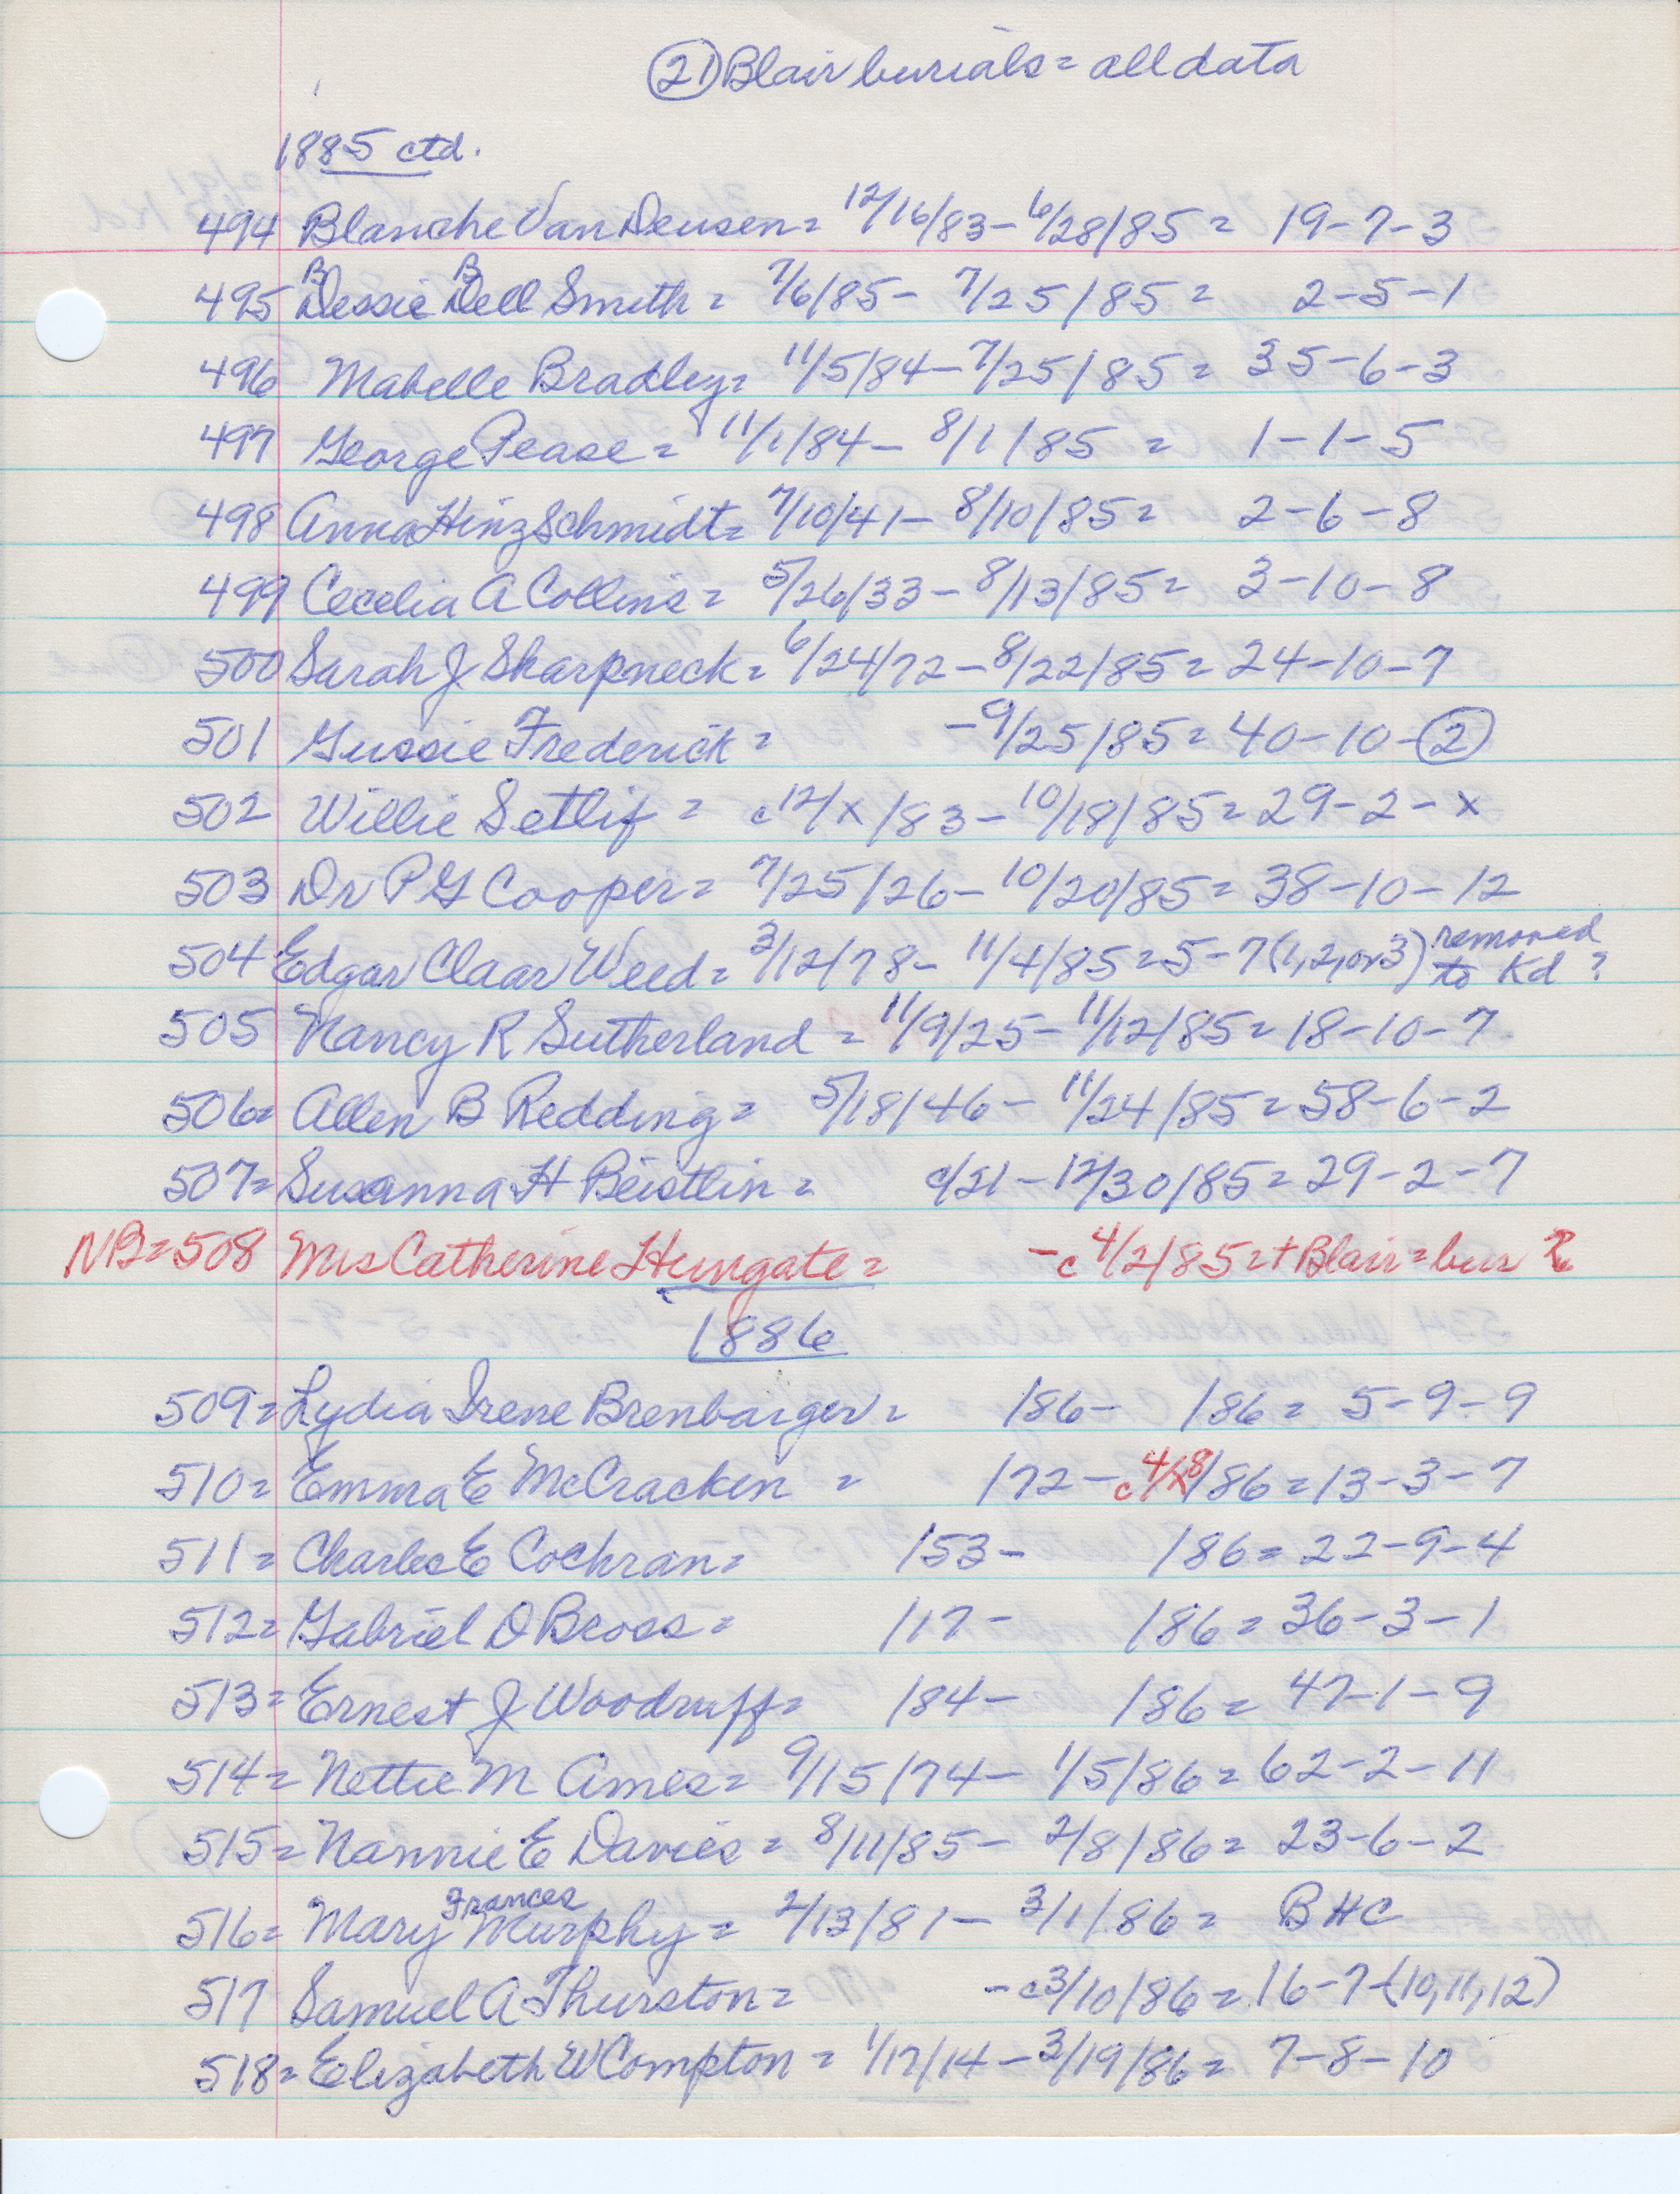 (21) Blair burials = all data
1885 ctd.
494 Blanche Van Deusen = 12/16/83 - 6/28/85 = 19-7-3
B B
495 Dessie Dell Smith = 7/6/85 - 7/25/85 = 2-5-1
496 Mabelle Bradley = 11/5/84 - 7/25/85 = 35-6-3
497 George Pease = 11/1/84 - 8/1/85 = 1-1-5
498 Anna Hinzschmidt = 7/10/41 - 8/10/85 = 2-6-8
499 Cecelia A Collins = 5/26/33 - 8/13/85 = 3-10-8
500 Sarah J Sharpneck = 6/24/72 - 8/22/85 = 24-10-7
501 Gussie Frederick = - 9/25/85 = 40-10-(2)
502 Willie Setlif = c12/x/83 - 10/18/85 = 29-2-x
503 Dr P G Cooper = 7/25/26 - 10/20/85 = 38-10-12
504 Edgar Claar Weed = 3/12/78 - 11/4/85 = 5-7(1,2,or3) removed to Kd ?
505 Nancy R Sutherland = 11/9/25 - 11/12/85 = 18-10-7
506= Allen B Redding = 5/18/46 - 11/24/85 = 58-6-2
507= Susanna H Beistlin = c/21 - 12/30/85 = 29-2-7
NB=508 Mrs Catherine Hungate = - c 4/2/85 = + Blair = bur ?
1886
509= Lydia Irene Brenbarger = /86 - /86 = 5-9-9
510= Emma E McCracken = /72 - c4/x8/86 = 13-3-7
511= Charles E Cochran = /53 - /86 = 22-9-4
512= Gabriel D Bross = /17 - /86 = 36-3-1
513= Ernest J Woodruff = /84 - /86 = 47-1-9
514= Nettie M Ames = 9/15/74 - 1/5/86 = 62-2-11
515= Nannie E Davies = 8/11/85 - 2/8/86 = 23-6-2
Frances
516= Mary Murphy = 2/13/81 - 3/1/86 = BHC
517 Samuel A Thurston = - c3/10/86 = 16-7-(10,11,12)
518= Elizabeth W Compton = 1/17/14 - 3/19/86 = 7-8-10